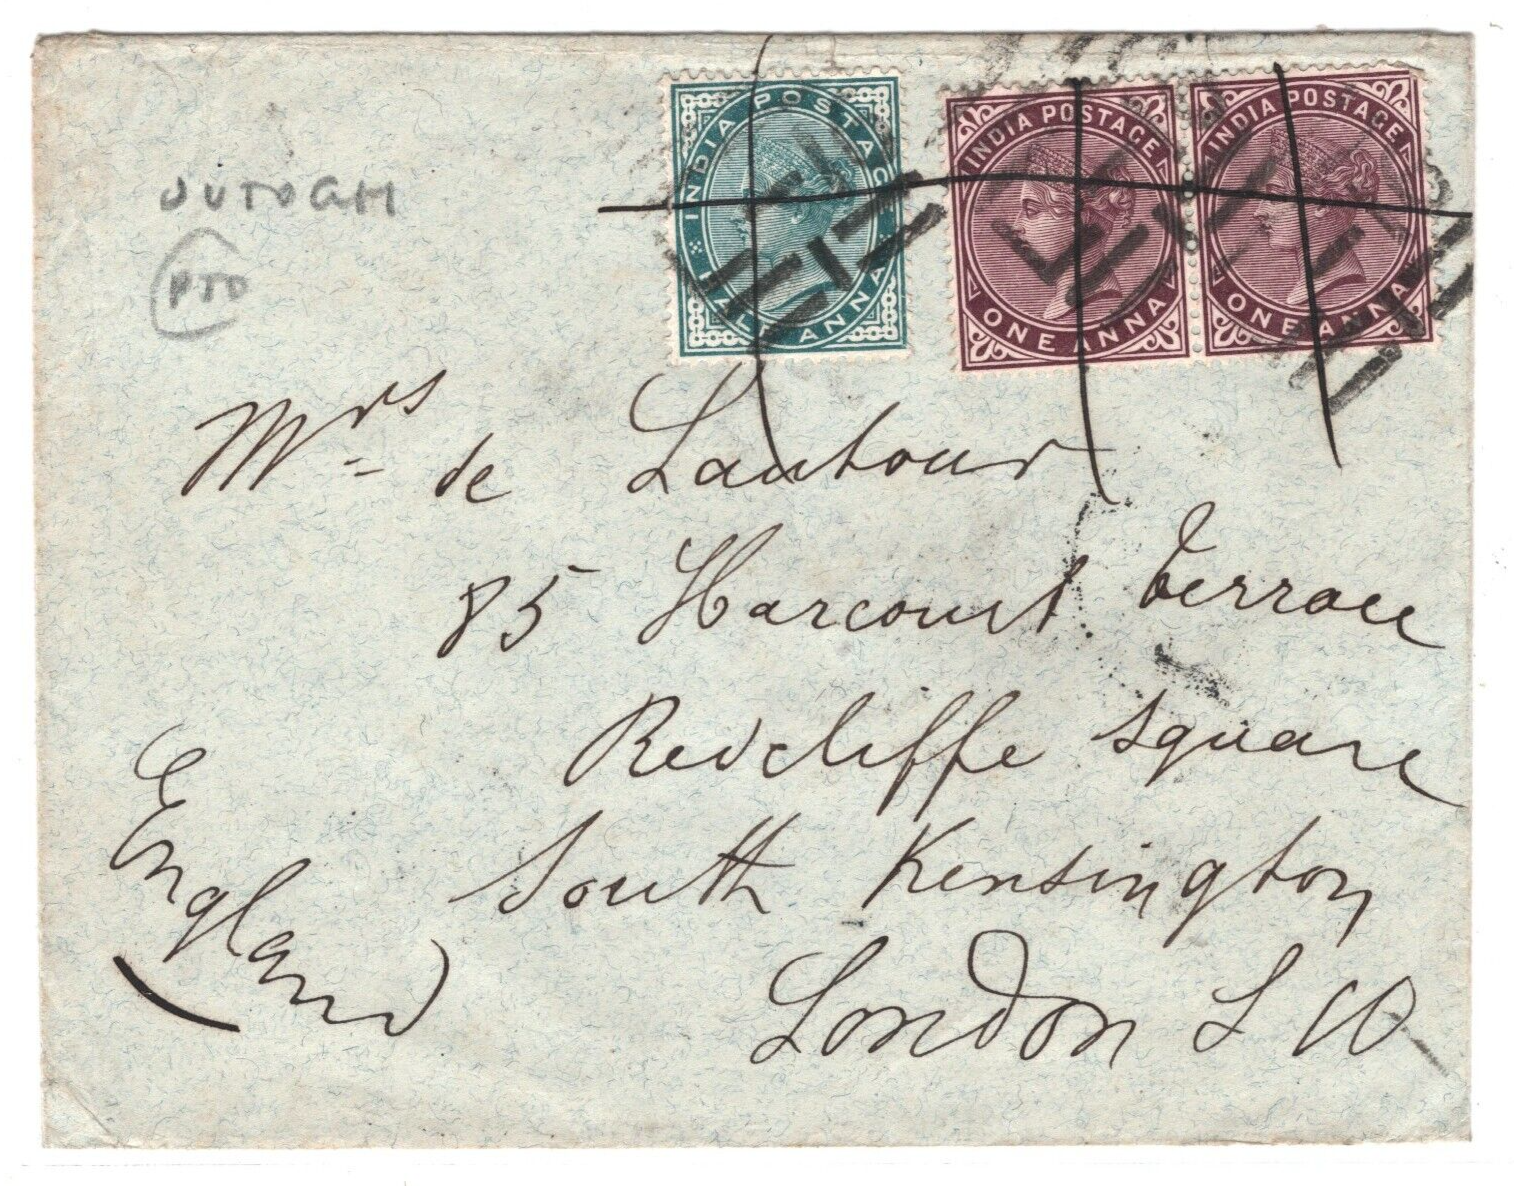 INDIA POSTAGE
HALF ANNA
INDIA POSTAGE
ONE ANNA
INDIA POSTAGE
ONE ANNA
JUTOGH
PTO
Mrs de Lautour
85 Harcourt Terrace
Redcliffe Square
South Kensington
London S W
England